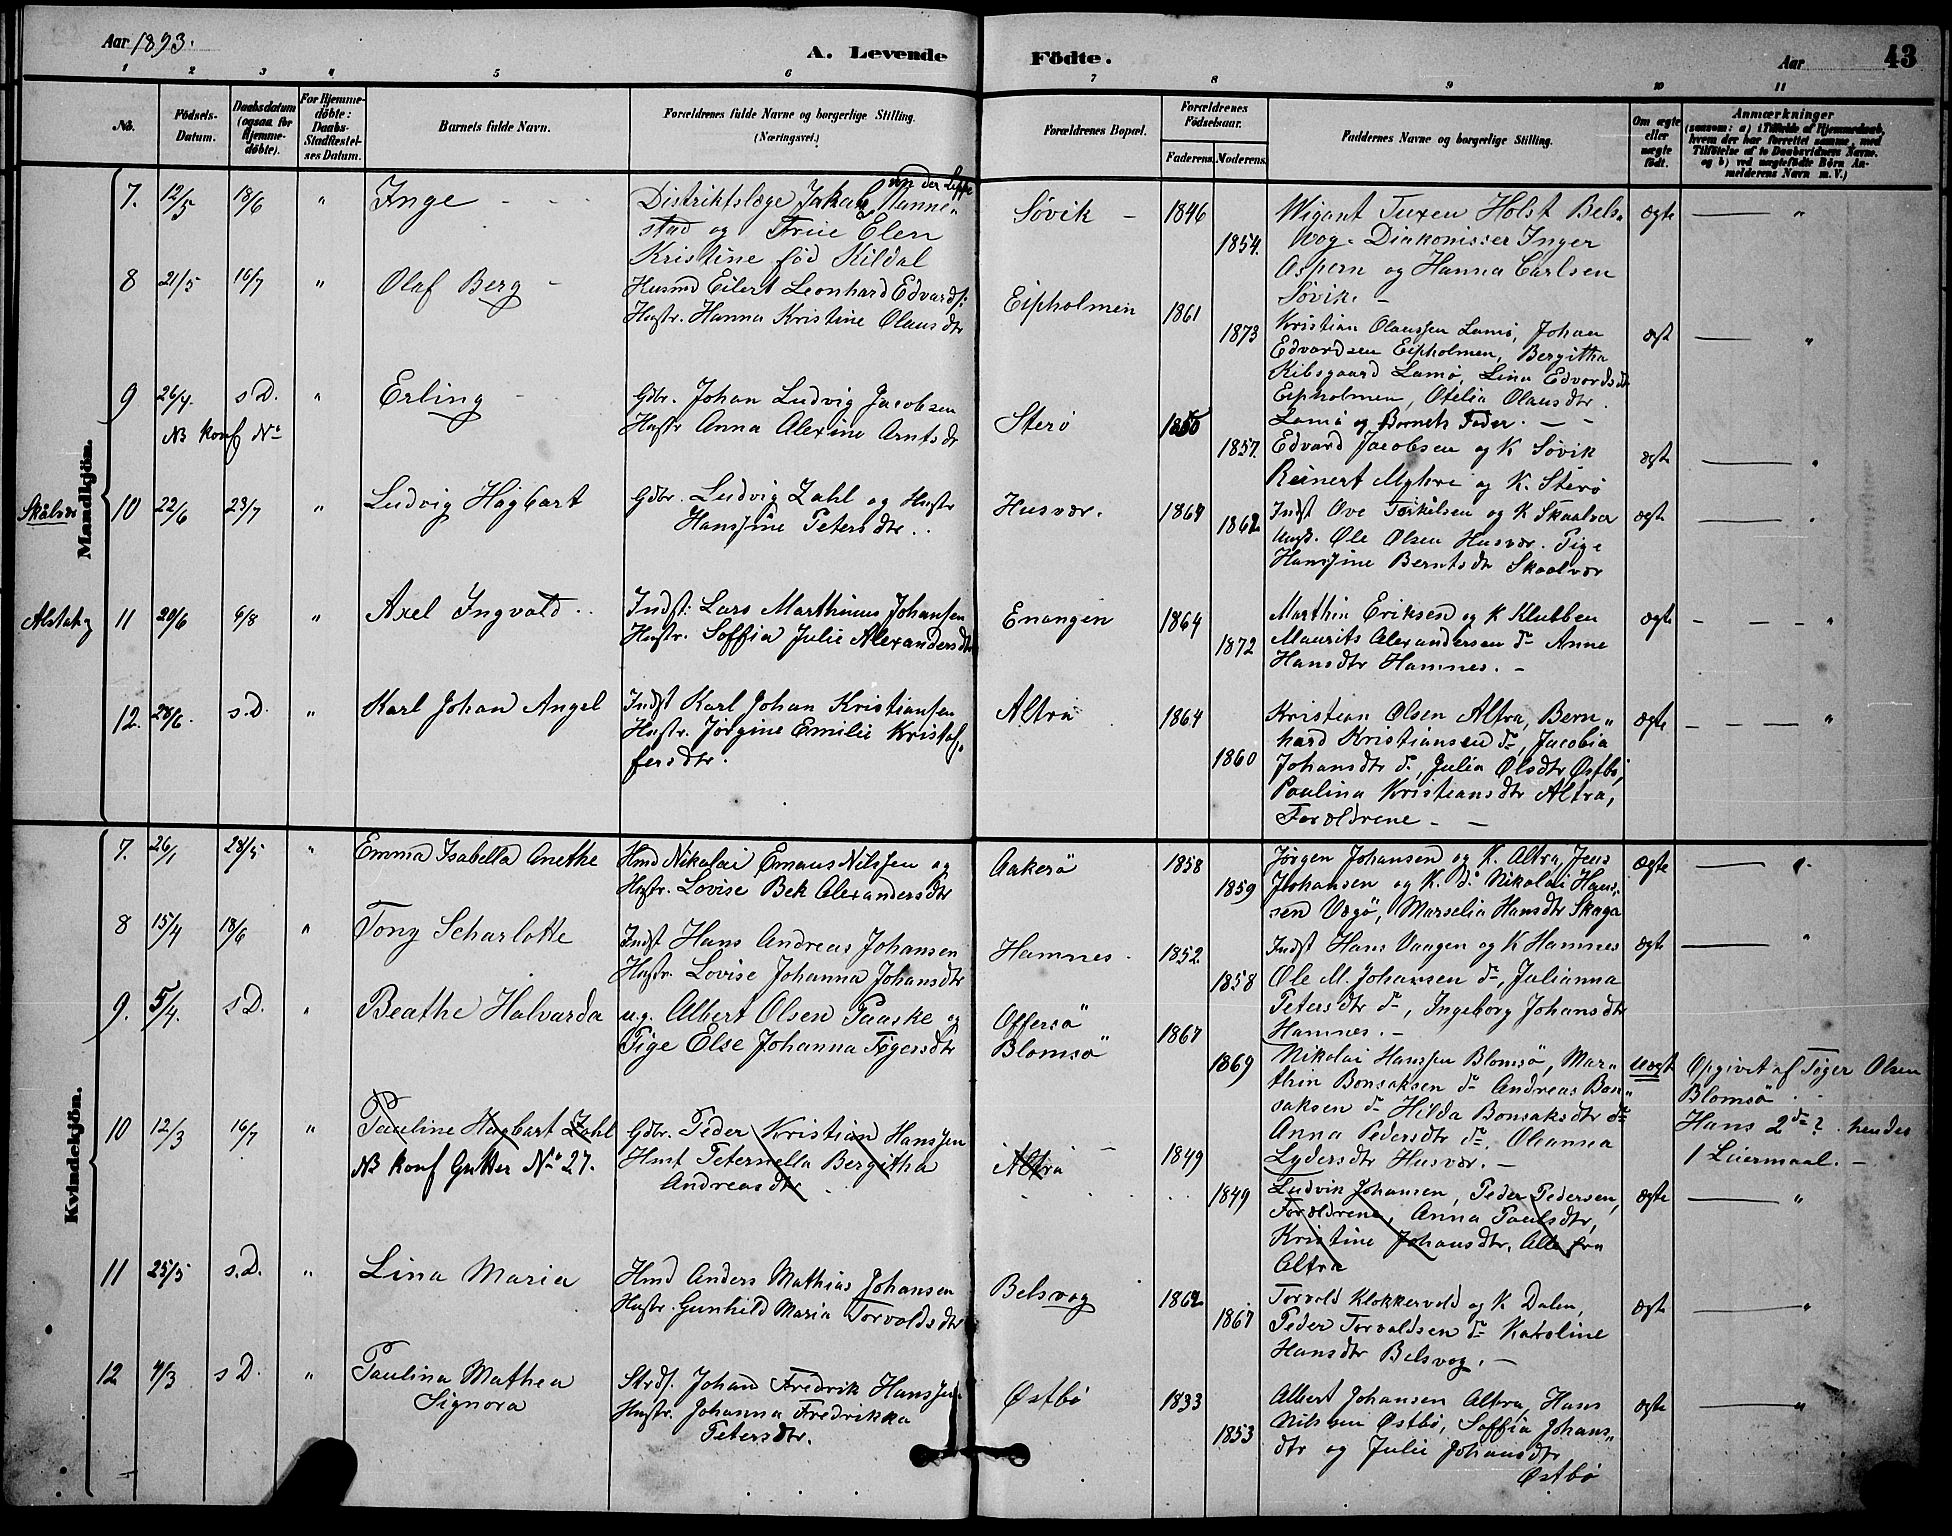 Aar 1893.
A. Levende Födte.
Aar
43
1 2 3 4 5 6 7 8 9 10 11
No.
Födsels-Datum.
Daabsdatum (ogsaa for Hjemme-döbte).
For Hjemme-döbte: Daabs-Stadfæstel-ses Datum.
Barnets fulde Navn.
Forældrenes fulde Navne og borgerlige Stilling. (Næringsvei.)
Forældrenes Bopæl.
Forældrenes Födselsaar.
Faderens. Moderens.
Faddernes Navne og borgerlige Stilling.
Om ægte eller uægte födt.
Anmærkninger
(saasom: a) i Tilfælde af Hjemmedaab, hvem der har forrettet samme, med Tilföielse af to Daabsvidners Navne, og b) ved uægtefödte Börn An-melderens Navn m. V.)
Mandkjön.
7. 12/5 18/6 " Inge
von der Lippe
Distriktslæge Jakob Manne-
stad og Frue Elen
Kristine fød Kildal
Søvik 1846 1854.
Wigant Tuxen Holst Bels-
vog. Diakonisser Inger
Aspern og Hanna Carlsen
Søvik.
ægte "
8 21/5 16/7 " Olaf Berg
Husmd Eilert Leonhard Edvards:
Hustr. Hanna Kristine Olausdtr
Eipholmen 1861 1873
Kristian Olaussen Lamø, Johan
Edvardsen Eipholmen, Bergitha
Kibsgaard Lamø, Lina Edvardsdtr
Eipholmen, Otelia Olausdtr.
Lamø og Barnets Fader.
ægt "
9 26/4. s.D. " Erling
NB konf No
Gdbr. Johan Ludvig Jacobsen
Hustr Anna Alexine Arntsdtr
Sterø 1857.
Edvard Jacobsen og K Søvik
Reinert Myhre og K. Sterø
ægte "
Skålvær
10 22/6 23/7 " Ludvig Hagbart
Gdbr. Ludvig Zahl og Hustr
Hansine Petersdtr.
Husvær. 1864 1862
Indst Ove Torkilsen og K Skaalvær
Ungk. Ole Olsen Husvær. Pige
Hansine Berntsdtr Skaalvær
ægt "
11 20/6 6/8 " Axel Ingvald
Indst: Lars Marthinus Johansen
Hustr. Soffia Julie Alexandersdtr
Enangen 1864 1872
Marthin Eriksen og K Klubben
Maurits Alexandersen do Anne
Hansdtr Hamnes.
ægte "
12. 28/6. s.D. " Karl Johan Angel
Indst Karl Johan Kristiansen
Hustr. Jørgine Emilie Kristof-
fersdtr.
Altra 1864 1860
Kristian Olsen Altra, Bern-
hard Kristiansen do, Jacobia
Johansdtr do, Julia Olsdtr Østbø,
Paulina Kristiansdtr Altra,
Forældrene
ægte "
Kvindekjön.
7. 26/1 28/5 " Emma Isabella Anethe
Hmd Nikolai Emaus Nilssen og
Hustr. Lovise Bek Alexandersdtr
Aakerø 1858 1859
Jørgen Johansen og K. Altra, Jens
Johansen og K. do Nikolai Hans-
sen Vegø, Marselia Hansdtr Skaga
ægte "
8 15/4 18/6 " Tony Scharlotte
Indst Hans Andreas Johansen
Hustr. Lovise Johanna Johansdtr
Hamnes. 1852. 1858
Indst Hans Vaagen og K Hamnes
Ole M. Johansen do, Julianna
Petersdtr do, Ingeborg Johansdtr
Hamnes.
ægte "
9. 5/4. s.D. " Beathe Halvarda
u.g. Albert Olsen Paaske og
Pige Else Johanna Tøgersdtr
Offersø
Blomsø 1867 1869
Nikolai Hanssen Blomsø, Mar-
thin Bonsaksen do Andreas Bon-
saksen do Hilda Bonsaksdtr do
Anna Pedersdtr do, Oleanna
Lydersdtr Husvær.
uægt
Opgivet af Tøger Olsen
Blomsø
Hans 2de? hendes
1 Leiermaal.
10 12/3 16/7 " Pauline Hagbart Zahl
NB konf Gutter No 27.
Gdbr. Peder Kristian Hanssen
Hust Peternella Bergitha
Andreasdtr
Altra 1849 1849
Ludvik Johansen, Peder Pedersen,
Forældrene, Anna Paulsdtr,
Kristine Johansdtr, Alle fra
Altra
ægte "
11 25/5 s.D. " Lina Maria
Hmd Anders Mathias Johansen
Hustr. Gunhild Maria Torvaldsdtr
Belsvog 1862 1867
Torvald Klokkervold og K Dalen,
Peder Torvaldsen do Karoline
Hansdtr Belsvog.
ægte "
12 4/3 s D. " Paulina Mathea
Signora
Strds. Johan Fredrik Hanssen
Hustr. Johanna Fredrikka
Petersdtr.
Østbø 1833 1853
Albert Johansen Altra, Hans
Nilssen Østbø, Soffia Johans-
dtr og Julie Johansdtr
Østbø
ægte "